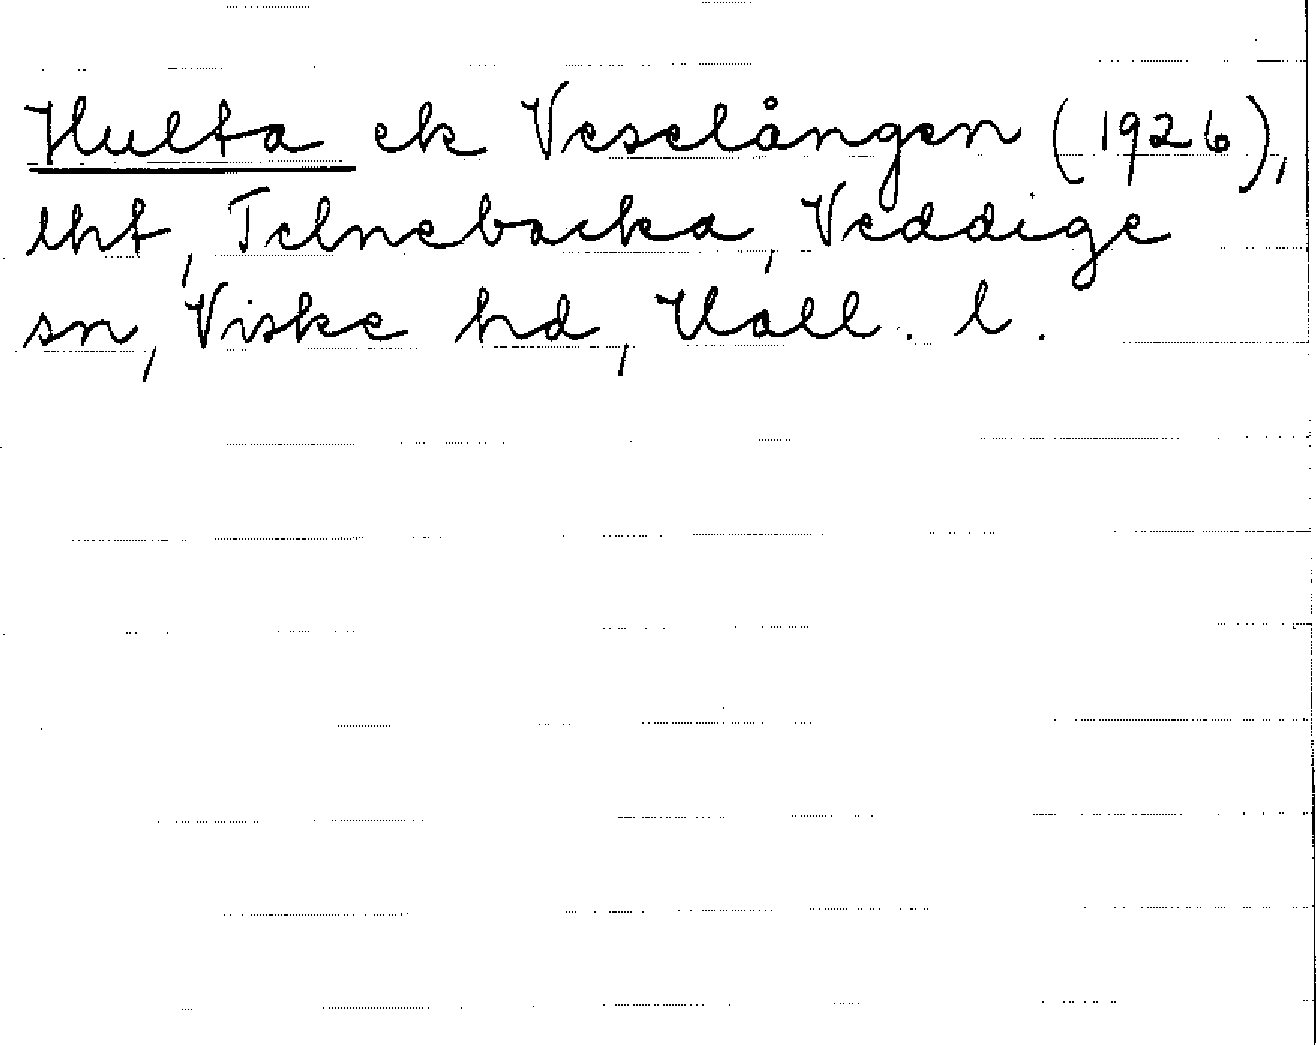 Hulta ek Veselången (1926),
lht, Telnebacka, Veddige
sn, Viske hd, Hall. l.